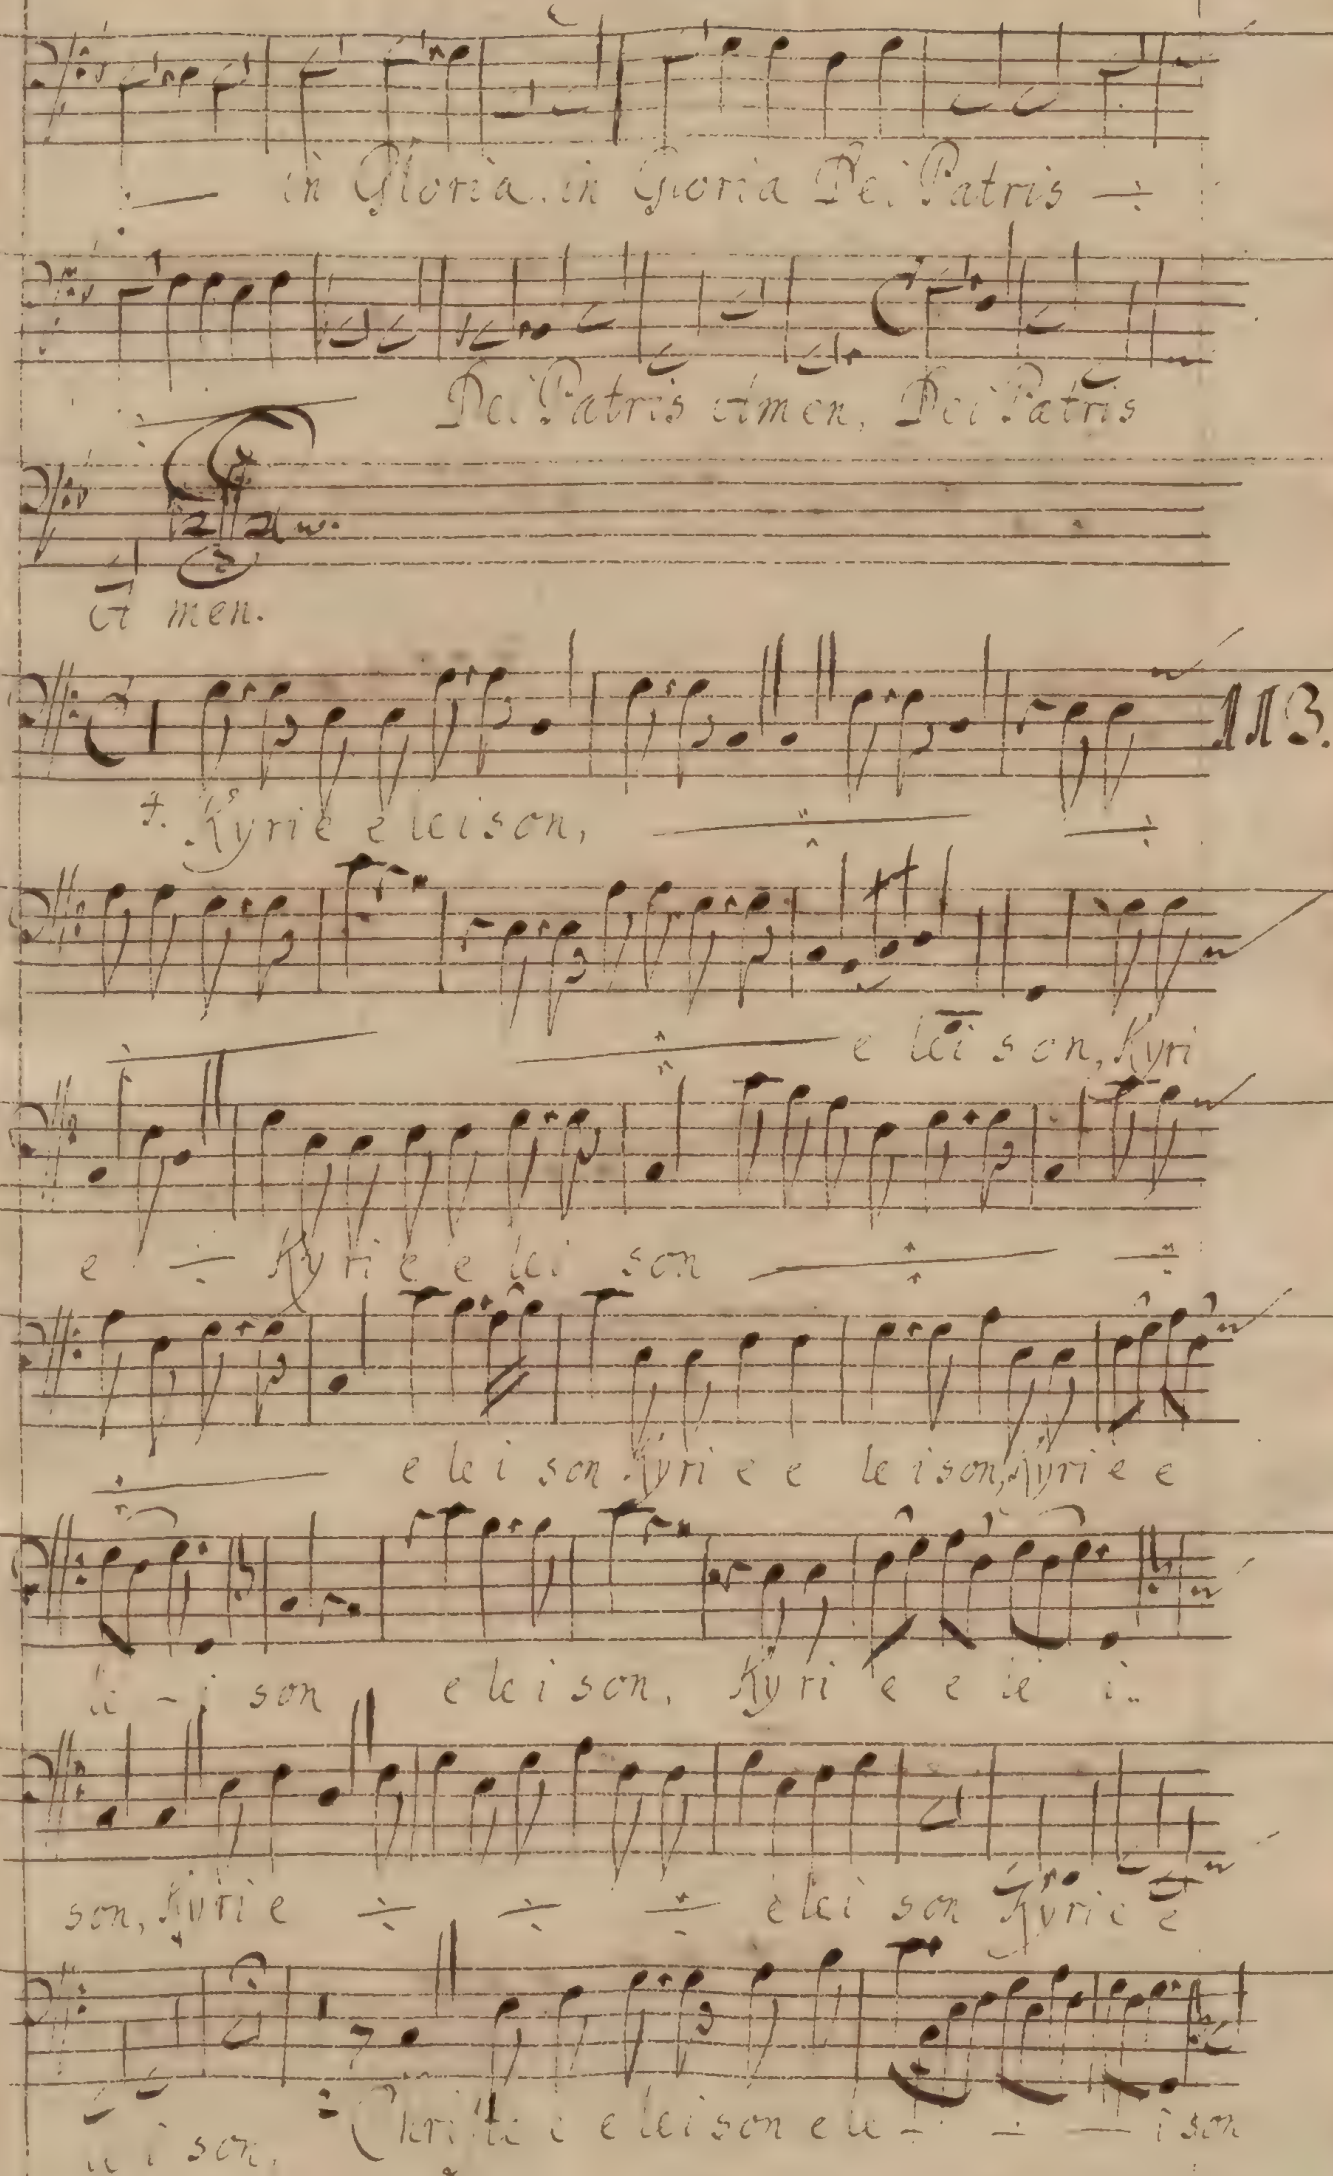 in Gloria. in Gloria Dei Patris
Dei Patris Amen, Dei Patris
A men.
113.
Kyrie eleison,
e lei son, Kyri
e Kyrie e lei son
e le i son Kyri e e le ison, Kyri e e
le - i son e le i son, Kyri e e le i..
son, Kyrie e lei son Kyrie e
le i son. Christe e leison e le - - - i son